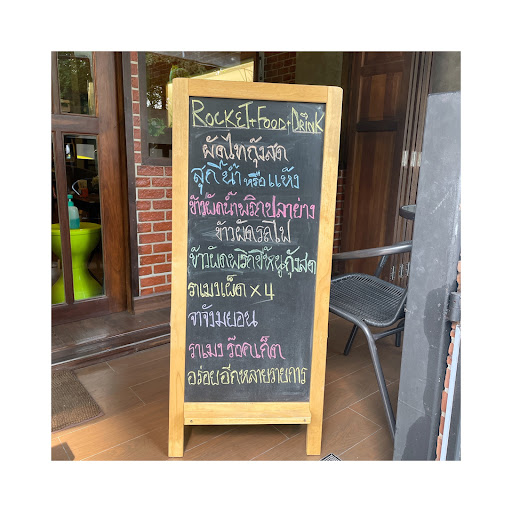 ROCKET+FOOD+DRINK
ผัดไทกุ้งสด
สุกี้น้ำ หรือแห้ง
ข้าวผัดน้ำพริกปลาย่าง
ข้าวผัดรถไฟ
ข้าวผัดพริกขี้หนูกุ้งสด
ราเมงเผ็ด x 4
จาจังมยอน
ราเมง ร๊อคเก็ต
อร่อยอีกหลายรายการ